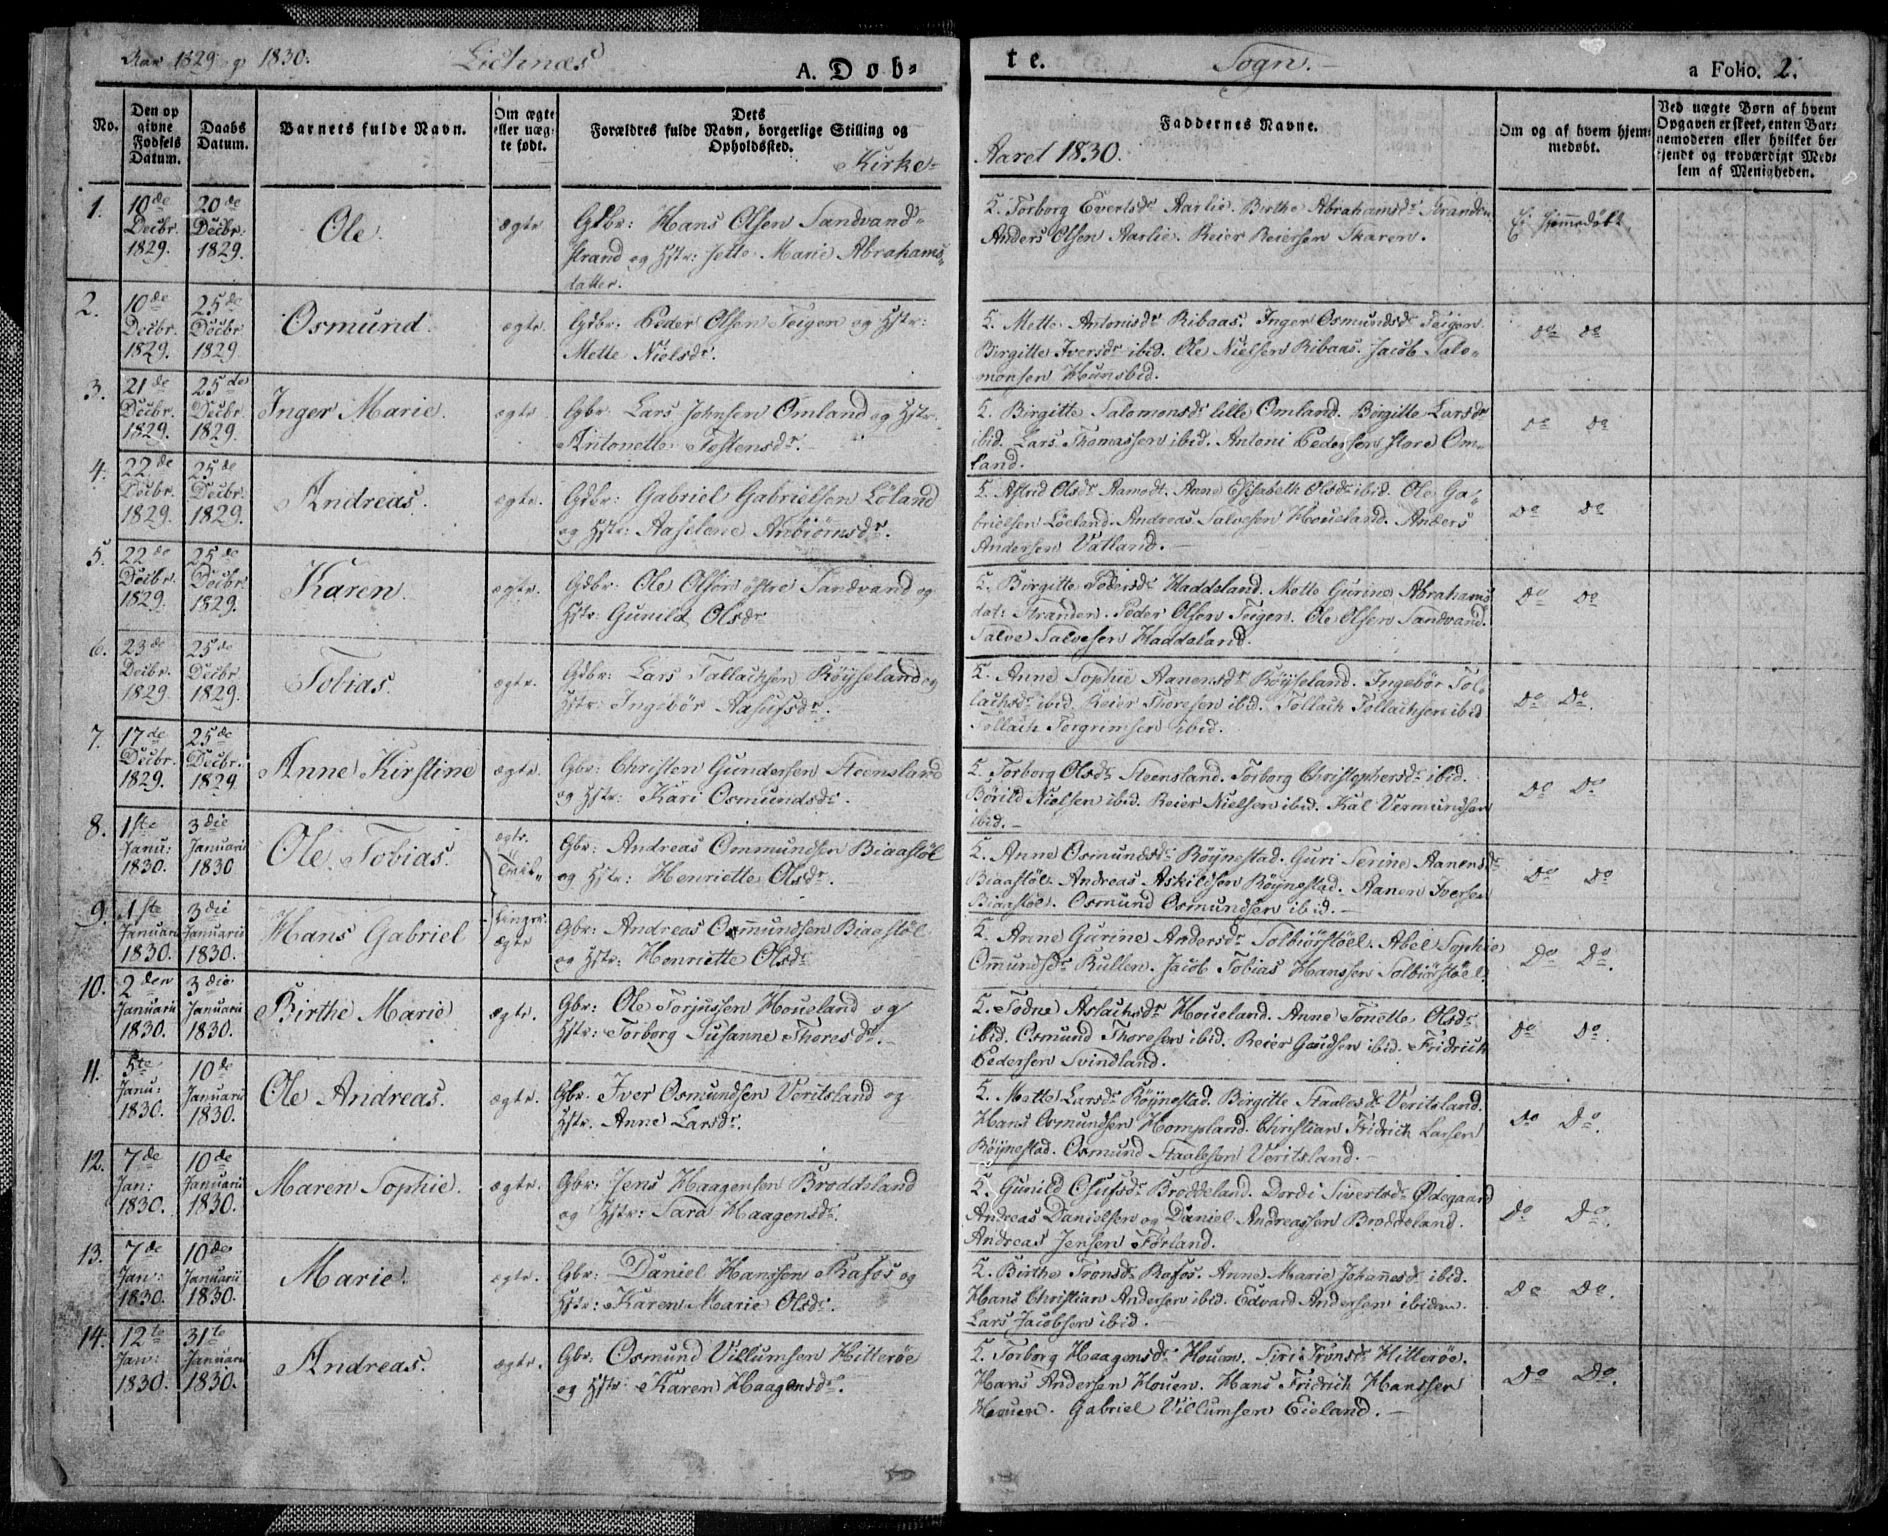 Aar 1829 og 1830. Lidnæs A. Døb- te. Sogn. a Folio. 2.
No.
Den op
givne
Fødsels
Datum.
Daabs
Datum.
Barnets fulde Navn.
Om ægte
eller uæg-
te født.
Dets
Forældres fulde Navn, borgerlige Stilling og
Opholdssted.
Kirke-
Faddernes Navne.
Aaret 1830.
Om og af hvem hjem-
medøbt.
Ved uægte Børn af hvem
Opgaven er skeet, enten Bar-
nemoderen eller hvilket be-
kjendt og troværdigt Med-
lem af Menigheden.
1. 10de Decbr. 1829. 20de Decbr. 1829. Ole. ægte
Gdbr: Hans Olsen Sandvand-
strand og Hstr: Jette Marie Abrahams-
datter.
K. Torborg Evertsdr Aarlie. Birthe Abrahamsdr Stranden
Anders Olsen Aarlie. Reier Reiersen Skaren.
Ei hjemmedøbt.
2. 10de Decbr. 1829. 25de Decbr 1829 Osmund. ægte.
Gdbr: Peder Olsen Teigen og Hstr:
Mette Nielsdr.
K. Mette Antonisdr Ribaas. Inger Osmundsdr Teigen
Birgitte Iversdr ibid. Ole Nielsen Ribaas. Jacob Salo-
monsen Hunsbid.
do do
3. 21de Decbr. 1829. 25de Decbr. 1829. Inger Marie. ægte.
Gbr: Lars Johnsen Omland og Hstr:
Antonette Tostensdr.
K. Birgitte Salomonsdr lille Omland. Birgitte Larsdr
ibid. Lars Thomassen ibid. Antoni Pedersen store Om-
land.
do do
4. 22de Decbr. 1829. 25de Decbr. 1829. Andreas. ægte.
Gdbr: Gabriel Gabrielsen Löland
og Hstr: Aaselene Anbiörnsdr.
K. Astrid Olsdr Aamodt. Anne Elisabeth Olsdr ibid. Ole Ga-
brielsen Löeland. Andreas Salvesen Houeland. Anders
Andersen Vatland.
Do do
5. 22de Decbr. 1829. 25de Decbr. 1829. Karen. ægte.
Gdbr: Ole Olsen östre Sandvand og
Hstr: Gunild Olsdr
K. Birgitte Pedersdr Haddeland. Mette Gurine Abrahams
dat: Stranden. Peder Olsen Teigen. Ole Olsen Sandvand.
Salve Salvesen Haddeland.
Do Do
6. 23de Decbr. 1829. 25de Decbr 1829. Tobias. ægte.
Gdbr: Lars Tallachsen Röyseland og
Hstr: Ingebör Aasufsdr.
K. Anne Sophie Aanensdr Röyseland. Ingebör Tol-
lachsdr ibid. Reier Thoresen ibid. Tollach Tollachsen ibid
Tollach Tergrimsen ibid.
Do Do.
7. 17de Decbr. 1829. 25de Decbr. 1829 Anne Kirstine ægte.
Gbr: Christen Gundersen Steensland
og Hstr: Kari Osmundsdr.
K. Torborg Olsdr Steensland. Torborg Christophersdr ibid.
Börild Nielsen ibid. Reier Nielsen ibid. Kal Vermundsen
ibid.
Do Do.
8. 1ste Janu: 1830. 3die Januarii 1830 Ole Tobias. ægte. Tvil-
Gbr: Andreas Ommundsen Biaastöl
og Hstr: Henriette Olsdr.
K. Anne Osmundsdr Röynestad. Guri Serine Aanensdr
Biaastöl. Andreas Askildsen Röynestad. Aanen Iversen
Biaastöl. Osmund Osmundsen ibid.
Do Do
9. 1ste Januarii 1830. 3die Januarii 1830. Hans Gabriel linger. ægte
Gbr: Andreas Ommundsen Biaastöl
og Hstr: Henriette Olsdr
K. Anne Gurine Andersdr Solbiörstöel. Abel Sophie
Ommundsdr Kullen. Jacob Tobias Hanssen Solbiörstöel.
Do Do.
10. 2den Januarii 1830. 3die Januarii 1830. Birthe Marie ægte.
Gbr: Ole Torjussen Houeland og
Hstr: Torborg Susanne Thoresdr.
K. Todne Aslachsdr Houeland. Anne Tonette Olsdr
ibid. Osmund Thoresen ibid. Reier Gaudsen ibid. Fridrich
Pedersen Svindland.
Do Do.
11. 5te Janu: 1830. 10de Januarii 1830. Ole Andreas. ægte.
Gbr. Iver Osmundsen Veritsland og
Hstr. Anne Larsdr.
K. Mette Larsdr Röynestad. Birgitte Staalesdr Veritsland.
Hans Osmundsen Hompland. Christian Fridrich Larsen
Röynestad. Osmund Staalesen Veritsland.
Do Do.
12. 7de Jan: 1830. 10de Januarii 1830. Maren Sophie. ægte.
Gbr: Jens Haagensen Broddeland
og Hstr: Sara Haagensdr.
K. Gunild Osufsdr Broddeland. Dordi Sivertsdr Ödegaard
Andreas Danielsen og Daniel Andreassen Broddeland.
Andreas Jensen Förland.
Do Do.
13. 7de Jan: 1830. 10de Januarii 1830. Marie. ægte.
Gbr: Daniel Hanssen Rafos og
Hstr: Karen Marie Olsdr.
K. Birthe Tronsdr Rafos. Anne Marie Johannesdr ibid.
Hans Christian Andersen ibid. Edvard Andersen ibidem.
Lars Jacobsen ibid.
Do Do.
14. 12te Jan: 1830. 31te Januarii 1830. Andreas. ægte.
Gbr: Osmund Villumsen Hitteröe
og Hstr: Karen Haagensdr.
K. Torborg Haagensdr Houen. Siri Tronsdr Hitteröe.
Hans Andersen Houen. Hans Fridrich Hanssen
Houen. Gabriel Villumsen Eieland.
Do Do.